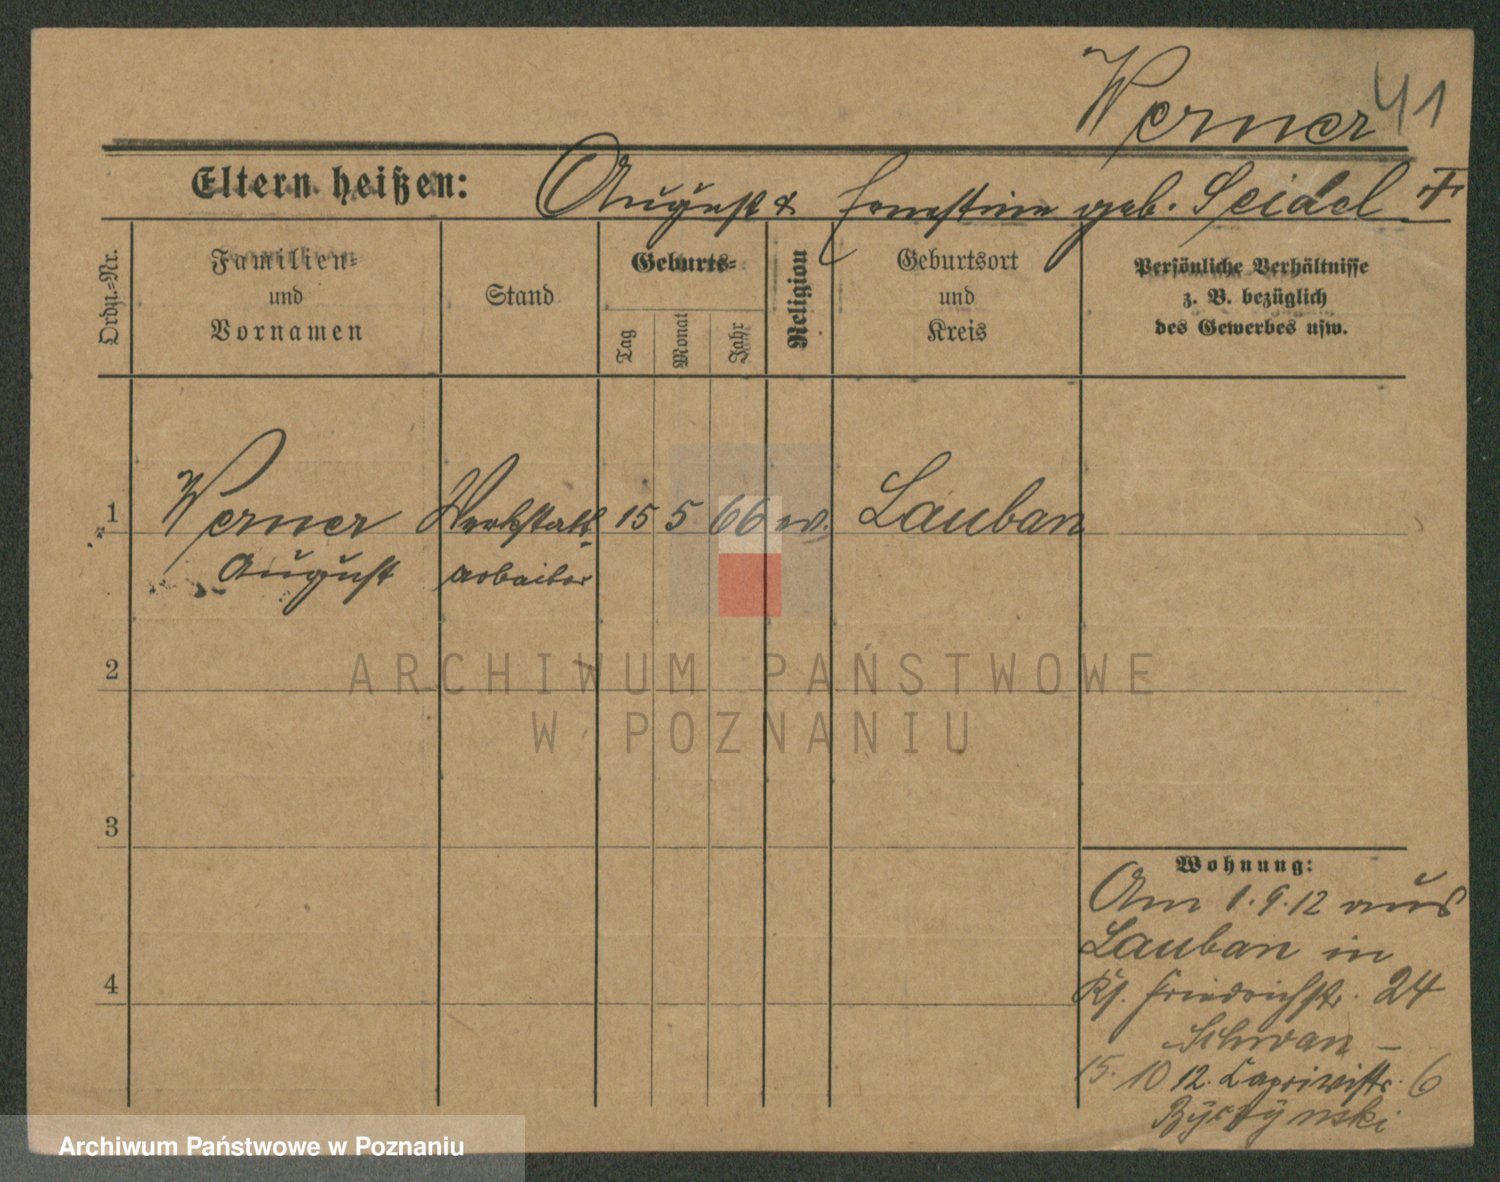 Werner 41
Eltern heißen: August & Ernestine geb. Seidel
Ordn.-Nr.
Familien-
und
Vornamen
Stand
Geburts-
Tag
Monat
Jahr
Religion
Geburtsort
und
Kreis
Persönliche Verhältnisse
z. B. bezüglich
des Gewerbes usw.
1 Werner Werkstatt- 15 5 66 ev. Lauban
August arbeiter
2
ARCHIWUM PAŃSTWOWE
W POZNANIU
3
Wohnung:
Am 1.9.12 aus
Lauban in
4
Friedrichstr. 24
Schwan
15. 10 12. Caprivistr. 6
Archiwum Państwowe w Poznaniu